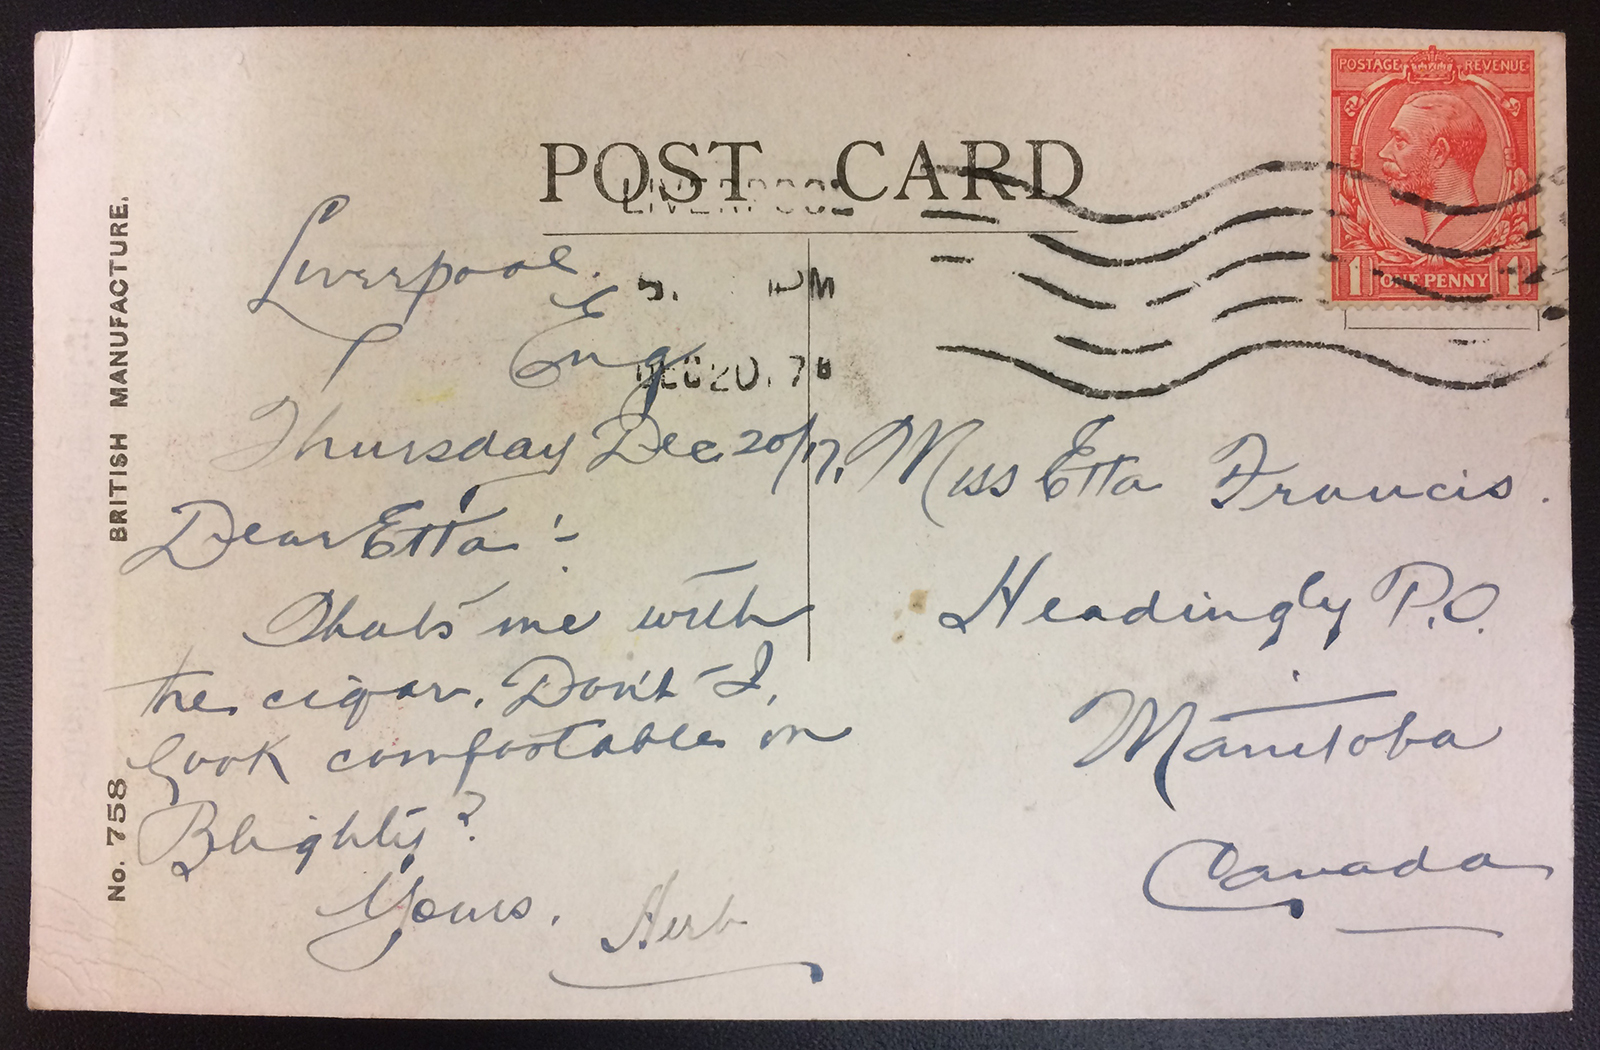 POST CARD
LIVERPOOL
PM
DEC 20.17
POSTAGE REVENUE
1 ONE PENNY 1
Liverpool.
Eng
Thursday Dec 20/17.
Dear Etta :-
Thats me with
the cigar. Don't I
look comfortable in
Blighty?
Yours, Herb
Miss Etta Francis.
Headingly P.O.
Manitoba
Canada
BRITISH MANUFACTURE.
No. 758